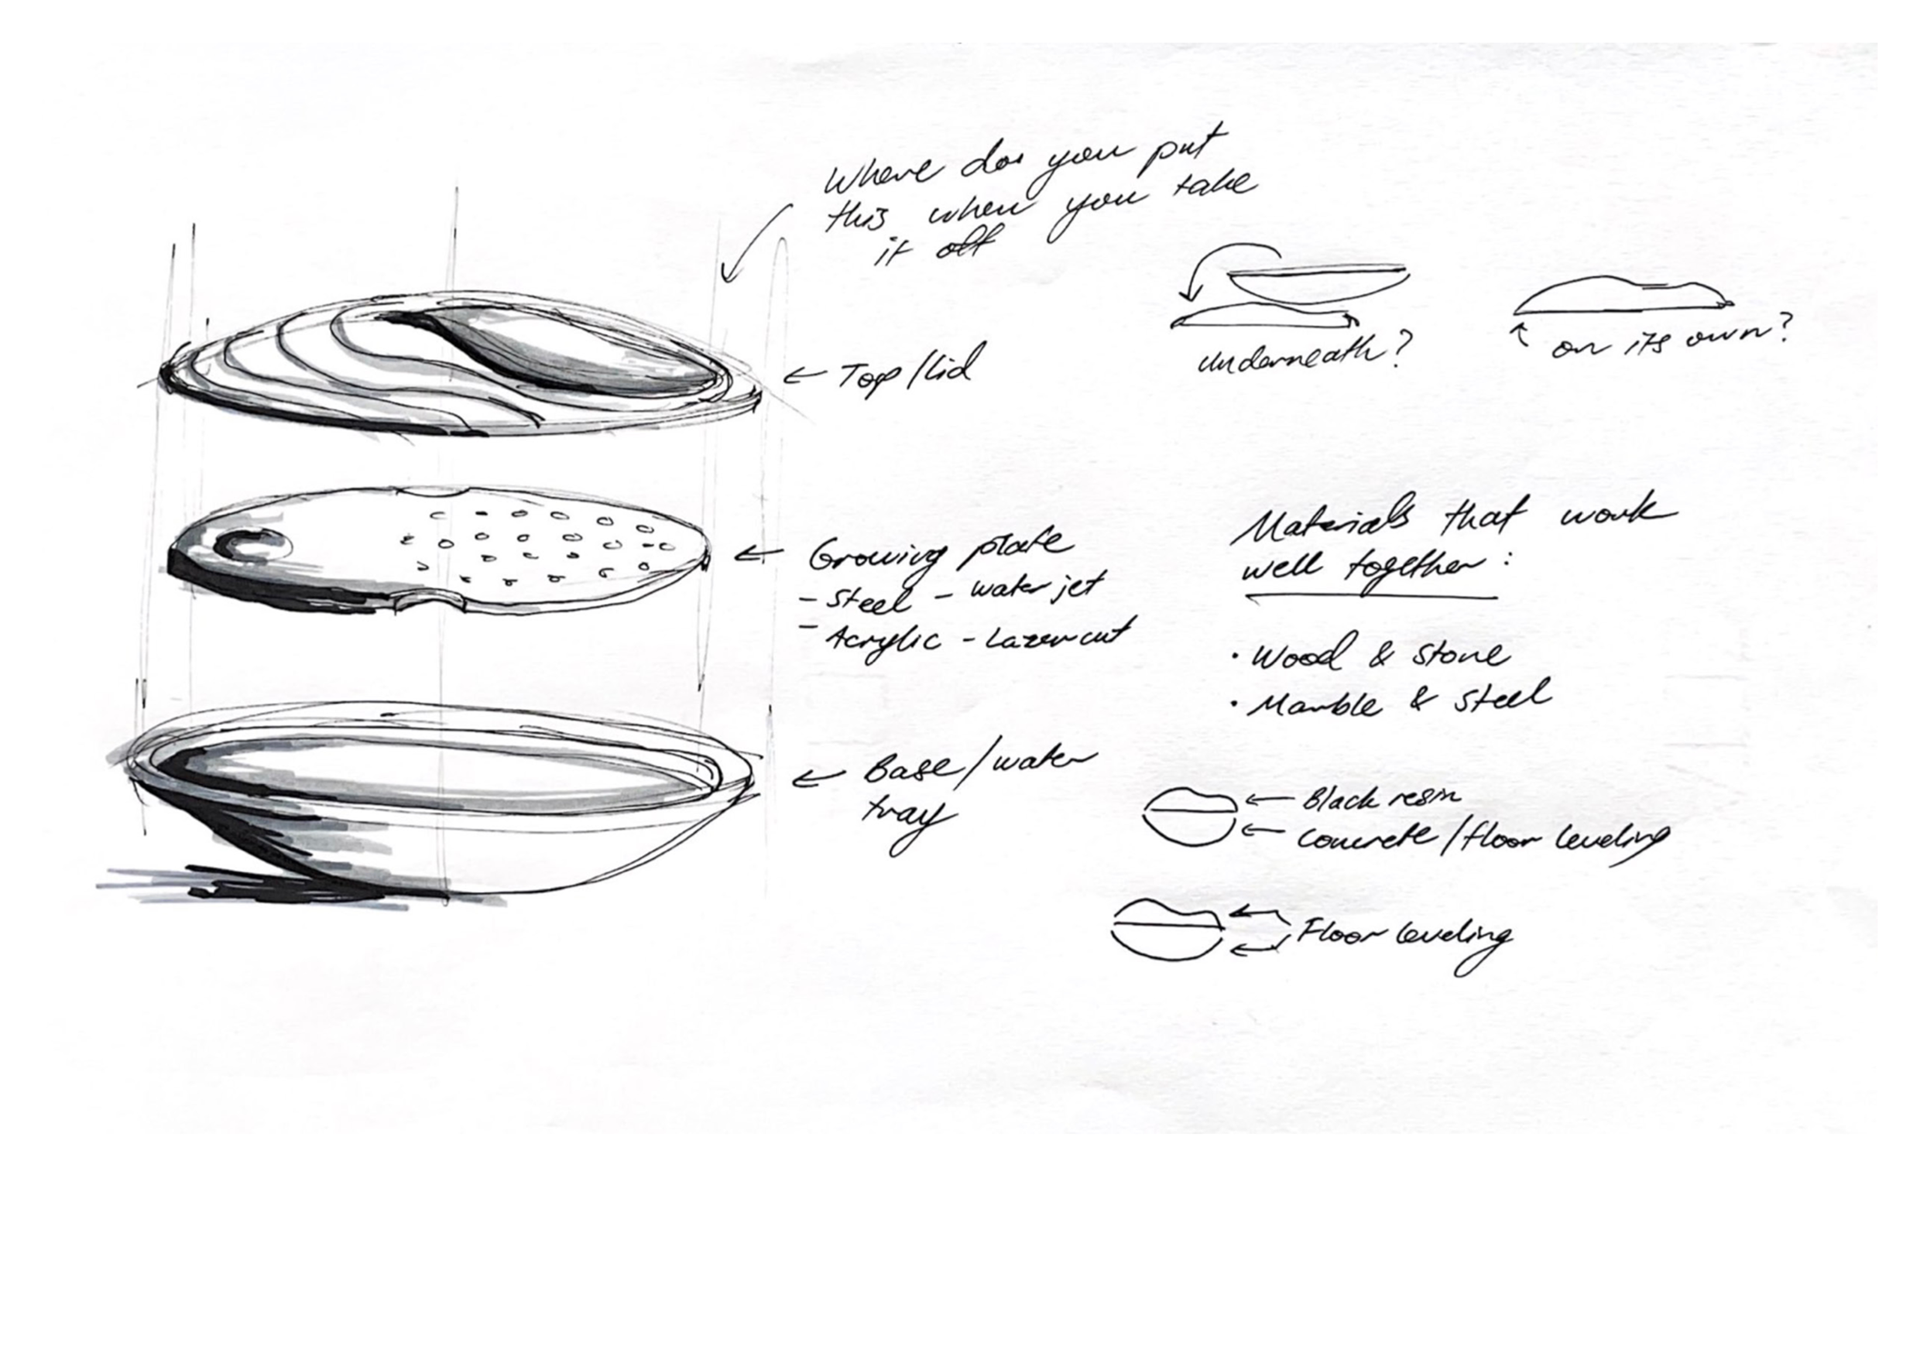 Where do you put
this when you take
it off
← Top/lid
underneath?
on its own?
← Growing plate
- Steel - water jet
- Acrylic - Lazer cut
Materials that work
well together:
• Wood & stone
• Marble & steel
← Base/water
tray
← Black resin
← concrete/floor leveling
Floor leveling